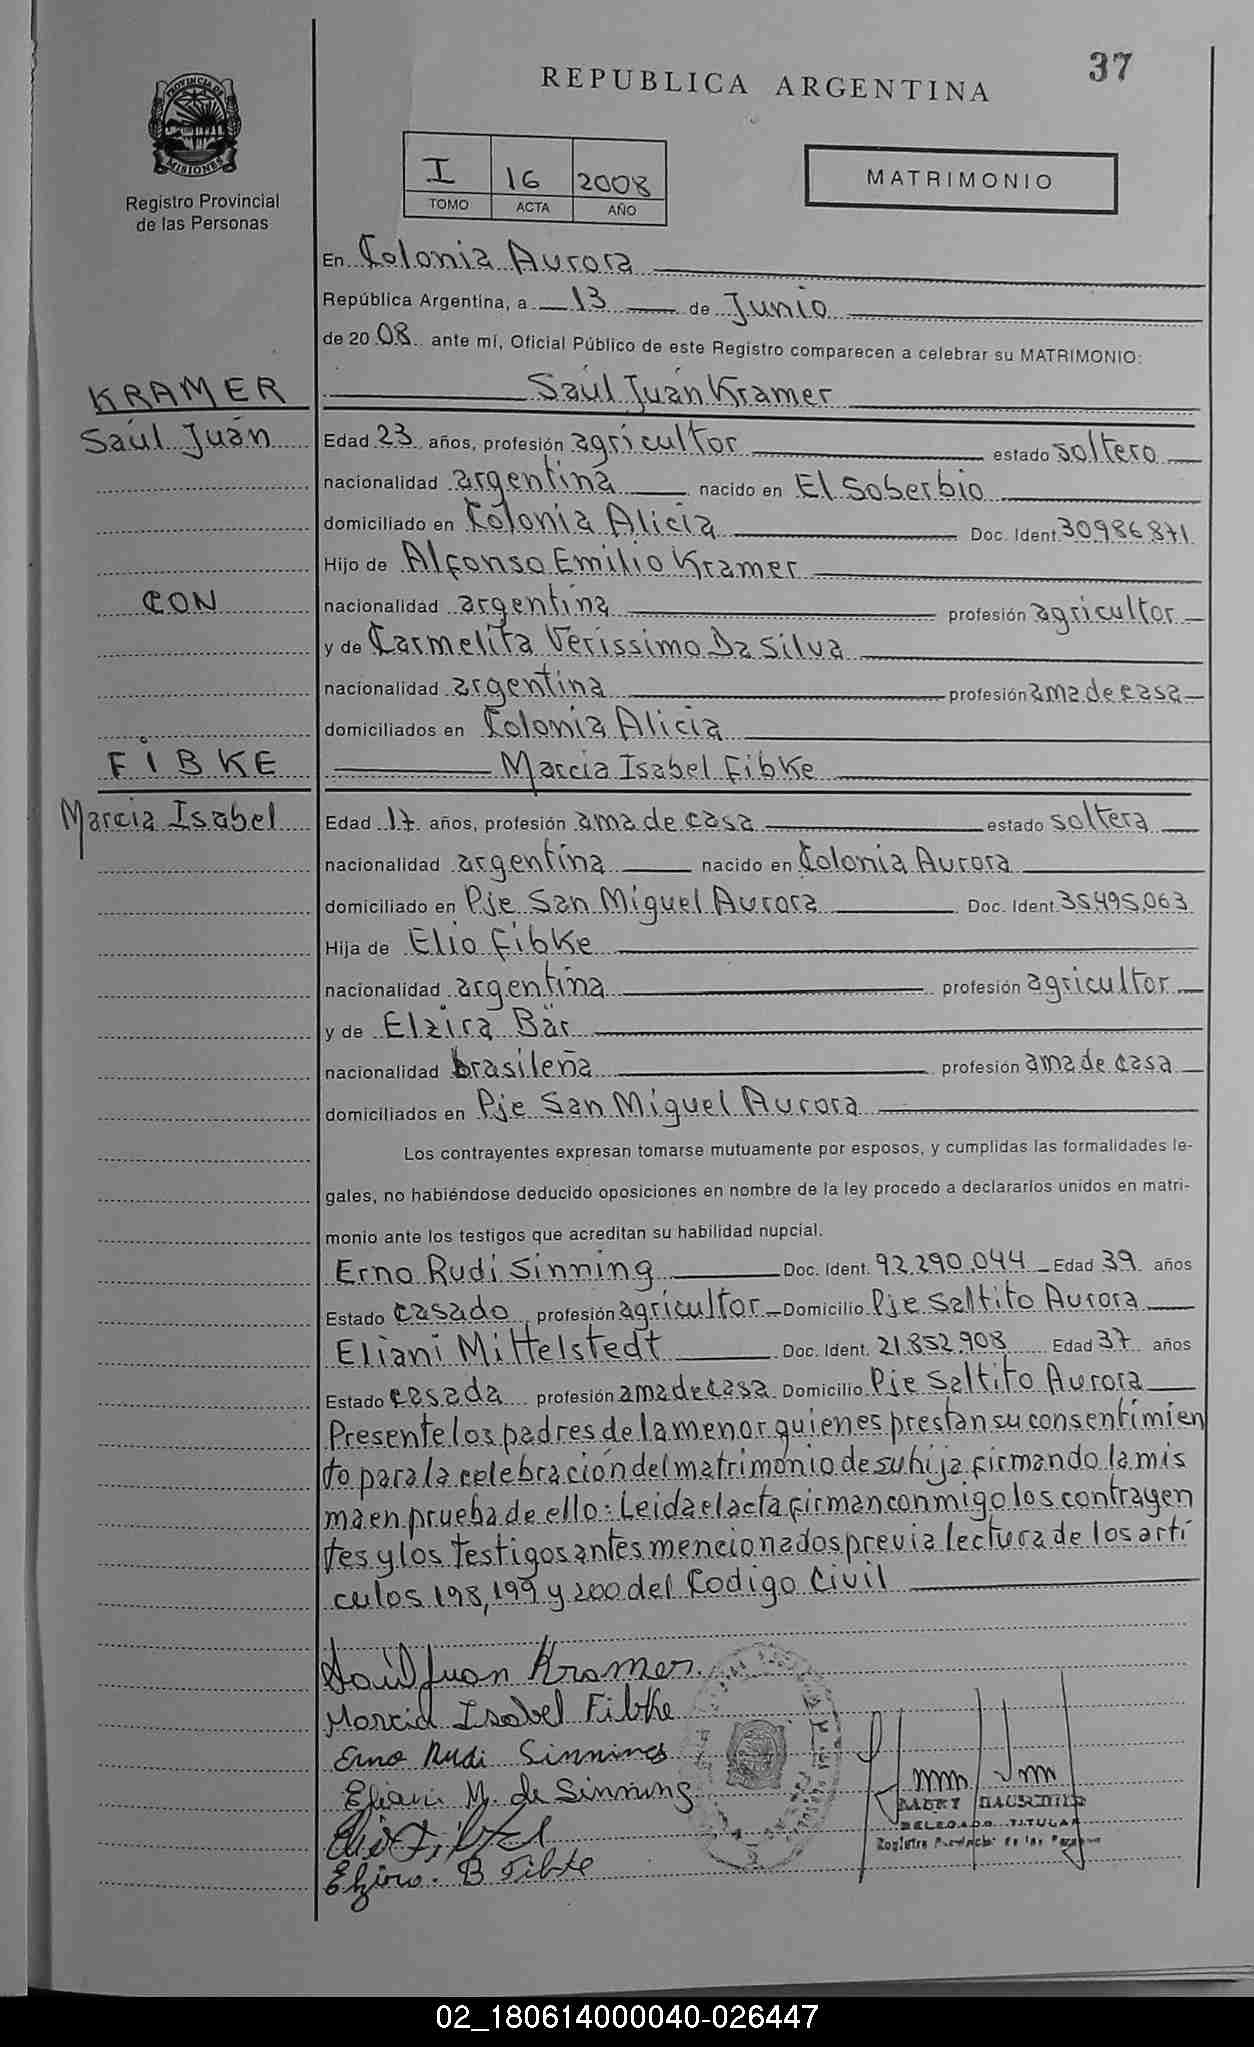 37
REPUBLICA ARGENTINA
PROVINCIA DE
MISIONES
Registro Provincial
de las Personas
I 16 2008
TOMO ACTA AÑO
MATRIMONIO
En Colonia Aurora
República Argentina, a 13 de Junio
de 20 08 ante mí, Oficial Público de este Registro comparecen a celebrar su MATRIMONIO:
KRAMER
Saúl Juan Kramer
Saúl Juán
Edad 23 años, profesión agricultor estado soltero
nacionalidad argentina nacido en El Soberbio
domiciliado en Colonia Alicia Doc. Ident. 30986871
Hijo de Alfonso Emilio Kramer
CON
nacionalidad argentina profesión agricultor
y de Carmelita Verissimo Da Silva
nacionalidad argentina profesión ama de casa
domiciliados en Colonia Alicia
FIBKE
Marcia Isabel Fibke
Marcia Isabel
Edad 17 años, profesión ama de casa estado soltera
nacionalidad argentina nacido en Colonia Aurora
domiciliado en Pje San Miguel Aurora Doc. Ident. 35.495.063
Hija de Elio Fibke
nacionalidad argentina profesión agricultor
y de Elzira Bär
nacionalidad brasileña profesión ama de casa
domiciliados en Pje San Miguel Aurora
Los contrayentes expresan tomarse mutuamente por esposos, y cumplidas las formalidades le-
gales, no habiéndose deducido oposiciones en nombre de la ley procedo a declararlos unidos en matri-
monio ante los testigos que acreditan su habilidad nupcial.
Erno Rudi Sinning Doc. Ident. 92.290.044 Edad 39 años
Estado casado profesión agricultor Domicilio Pje Saltito Aurora
Eliani Mittelstedt Doc. Ident. 21.852.908 Edad 37 años
Estado casada profesión ama de casa Domicilio Pje Saltito Aurora
Presente los padres de la menor quienes prestan su consentimien
to para la celebración del matrimonio de su hija firmando la mis
ma en prueba de ello: Leida el acta firman conmigo los contrayen
tes y los testigos antes mencionados previa lectura de los artí
culos 198, 199 y 200 del Codigo Civil
Saúl Juan Kramer
Marcia Isabel Fibke
Erno Rudi Sinning
Eliani M. de Sinning
Elio Fibke
Elzira B Fibke
DELEGADO TITULAR
Registro Provincial de las Personas
02_180614000040-026447